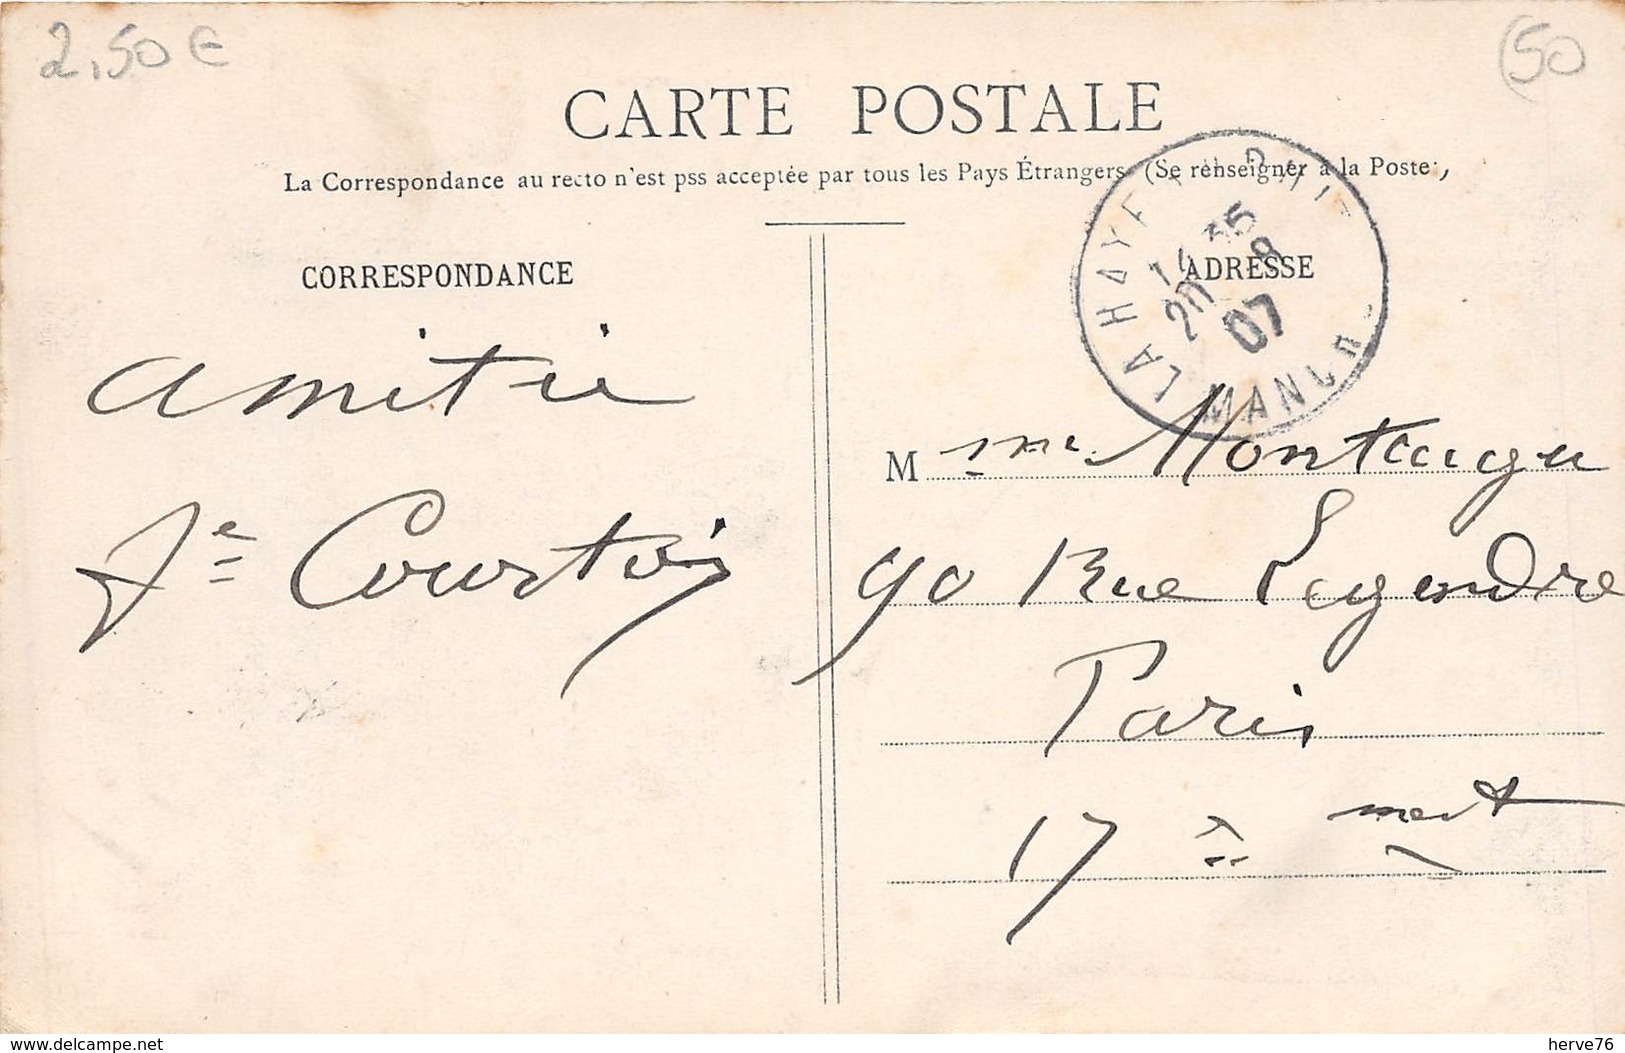 2,50 €
50
CARTE POSTALE
La Correspondance au recto n'est pss acceptée par tous les Pays Étrangers (Se renseigner à la Poste,
CORRESPONDANCE
ADRESSE
LA HAYE
35
20 8
07
MANCH
amitié
Je Courtois
Mme Montaigu
90 Rue Legendre
Paris
17è ment
www.delcampe.net
herve76